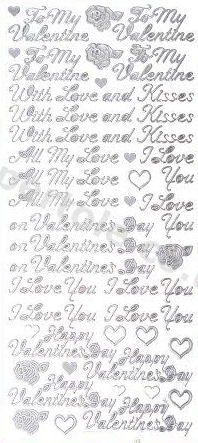 To My To My
Valentine Valentine
To My To My
Valentine Valentine
With Love and Kisses
With Love and Kisses
With Love and Kisses
All My Love I Love
All My Love You
All My Love I Love
on Valentine's Day You
on Valentine's Day
on Valentine's Day
I Love You I Love You
I Love You I Love You
Happy
Valentine's Day
Happy
Valentine's Day
Happy
Valentine's Day
Happy
Valentine's Day